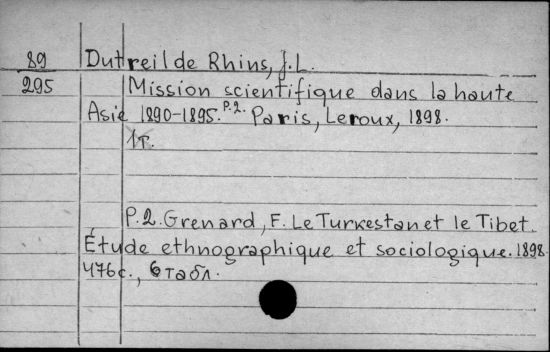 89 Dutreil de Rhins, J.L.
295 Mission scientifique dans la haute
Asie 1890-1895. P.2. Paris, Leroux, 1898.
1т.
P.2. Grenard, F. Le Turkestan et le Tibet.
Étude ethnographique et sociologique. 1898.
476 с., 6 табл.